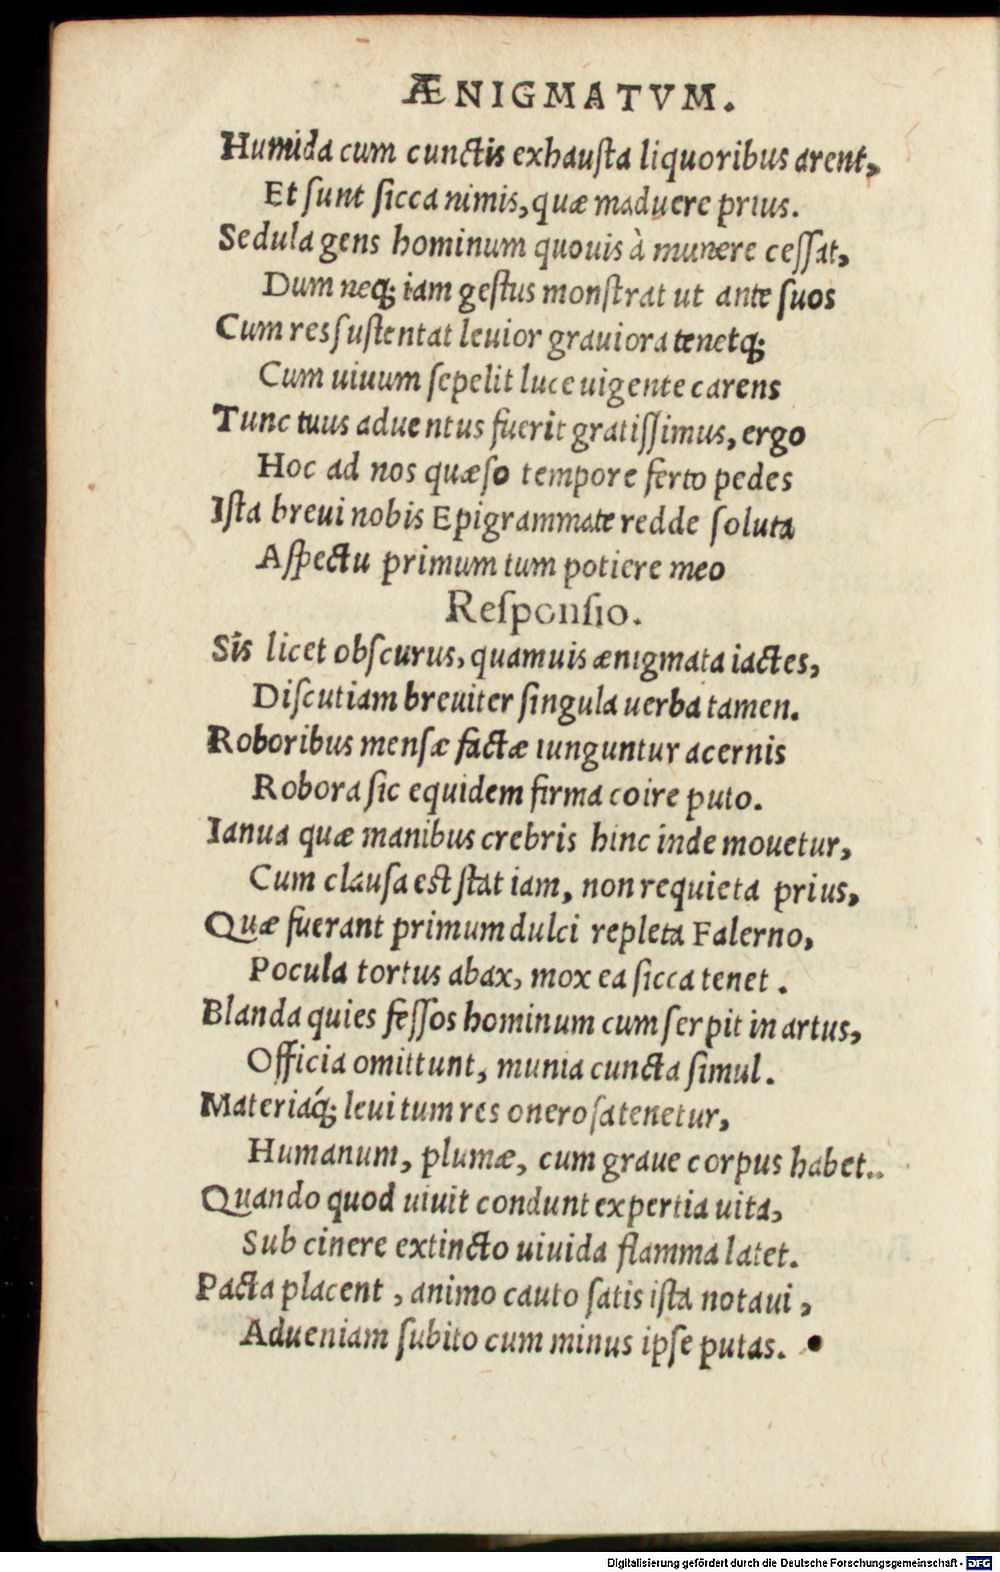 ÆNIGMATVM.
Humida cum cunctis exhauſta liquoribus arent,
Et ſunt ſicca nimis, quæ maduere prius.
Sedula gens hominum quouis à munere ceſſat,
Dum neq; iam geſtus monſtrat ut ante ſuos
Cum res ſuſtentat leuior grauiora tenetq;
Cum uiuum ſepelit luce uigente carens
Tunc tuus aduentus fuerit gratiſſimus, ergo
Hoc ad nos quæſo tempore ferto pedes
Iſta breui nobis Epigrammate redde ſoluta
Aſpectu primum tum potiere meo
Reſponſio.
Sis licet obſcurus, quamuis ænigmata iactes,
Diſcutiam breuiter ſingula uerba tamen.
Roboribus menſæ factæ iunguntur acernis
Robora ſic equidem firma coire puto.
Ianua quæ manibus crebris hinc inde mouetur,
Cum clauſa eſt ſtat iam, non requieta prius,
Quæ fuerant primum dulci repleta Falerno,
Pocula tortus abax, mox ea ſicca tenet.
Blanda quies feſſos hominum cum ſerpit in artus,
Officia omittunt, munia cuncta ſimul.
Materiaq́; leui tum res oneroſa tenetur,
Humanum, plumæ, cum graue corpus habet..
Quando quod uiuit condunt expertia uita,
Sub cinere extincto uiuida flamma latet.
Pacta placent, animo cauto ſatis iſta notaui,
Adueniam ſubito cum minus ipſe putas.
Digitalisierung gefördert durch die Deutsche Forschungsgemeinschaft - DFG